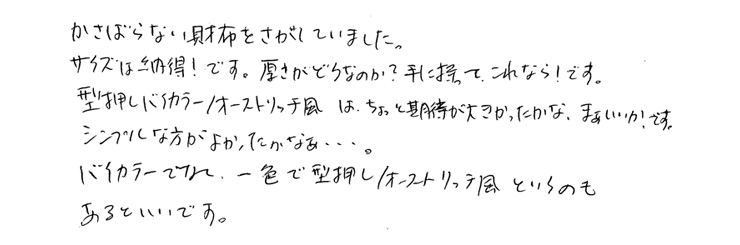 かさばらない財布をさがしていました。
サイズは納得!です。厚さがどうなのか?手に採って、これなら!です。
型押しバイカラー/オーストリッチ風 は、ちょっと期待が大きかったかな、まぁいいか!です。
シンプルな方がよかったかなぁ・・・。
バイカラーでなく、一色で型押し/オーストリッチ風 というのも
あるといいです。